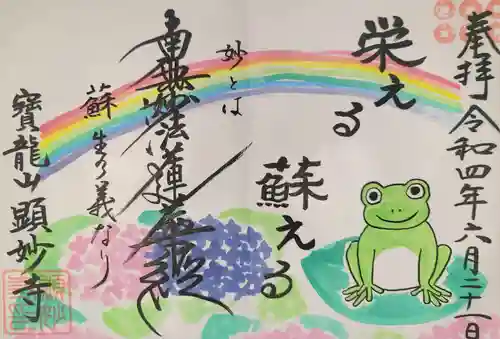 奉拝 令和四年六月二十一日
栄える
蘇える
妙とは
南無妙法蓮華経
蘇生の義なり
寶龍山 顕妙寺